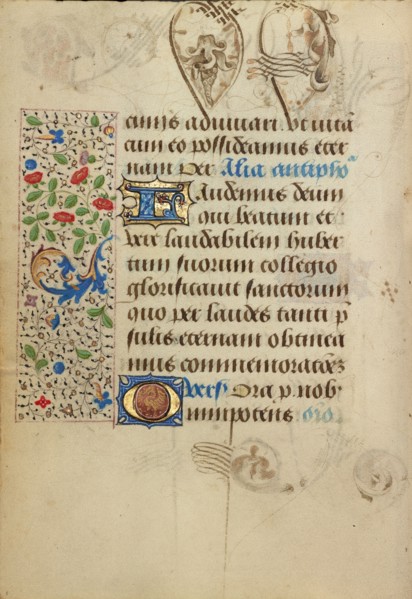 cuius adiuuari. vt uitā
cum eo possideamus eter
nam Per Alia antipho
Laudemus deum
qui beatum et
vere laudabilem huber
tum suorum collegio
glorificauit sanctorum
quo per laudes tanti p
sulis eternam obtinea
mus commemoratōez
vers Ora p. nob
Omnipotens oro